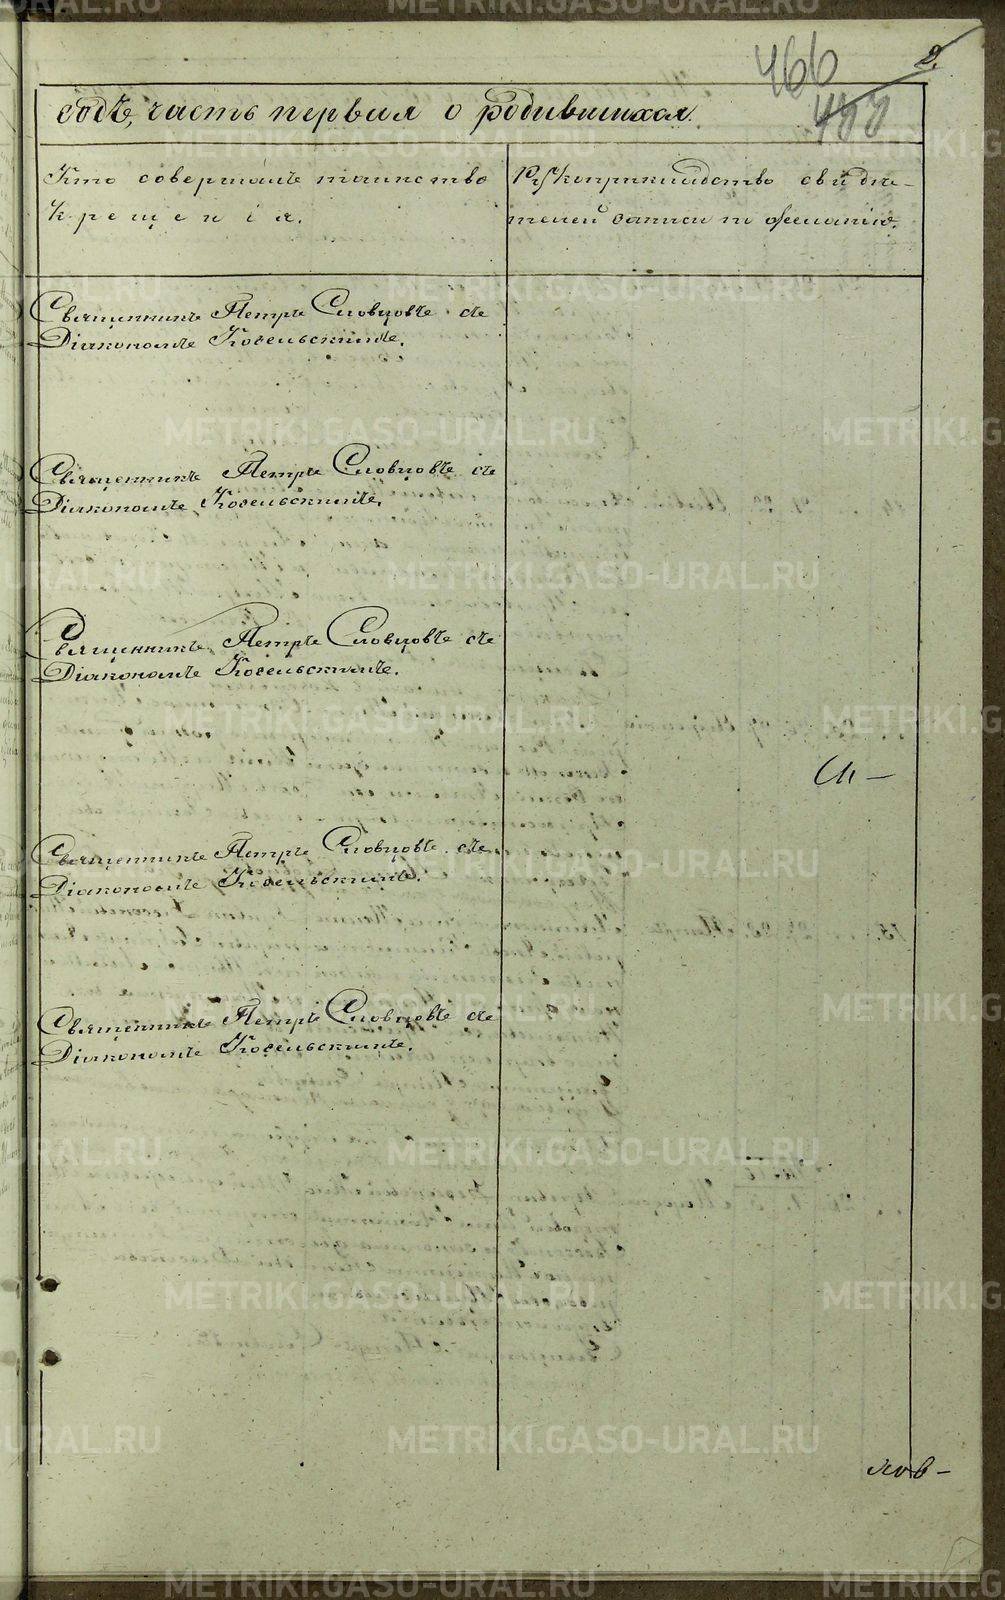 466
2.
477
годъ, часть первая о родившихся.
Кто совершалъ таинство
крещенія.
Рукоприкладство свидѣ-
телей записи по желанію.
Священникъ Петръ Словцовъ съ
Діакономъ Косельскимъ.
Священникъ Петръ Словцовъ съ
Діакономъ Косельскимъ.
Священникъ Петръ Словцовъ съ
Діакономъ Косельскимъ.
Священникъ Петръ Словцовъ съ
Діакономъ Косельскимъ.
Священникъ Петръ Словцовъ съ
Діакономъ Косельскимъ.
METRIKI.GASO-URAL.RU